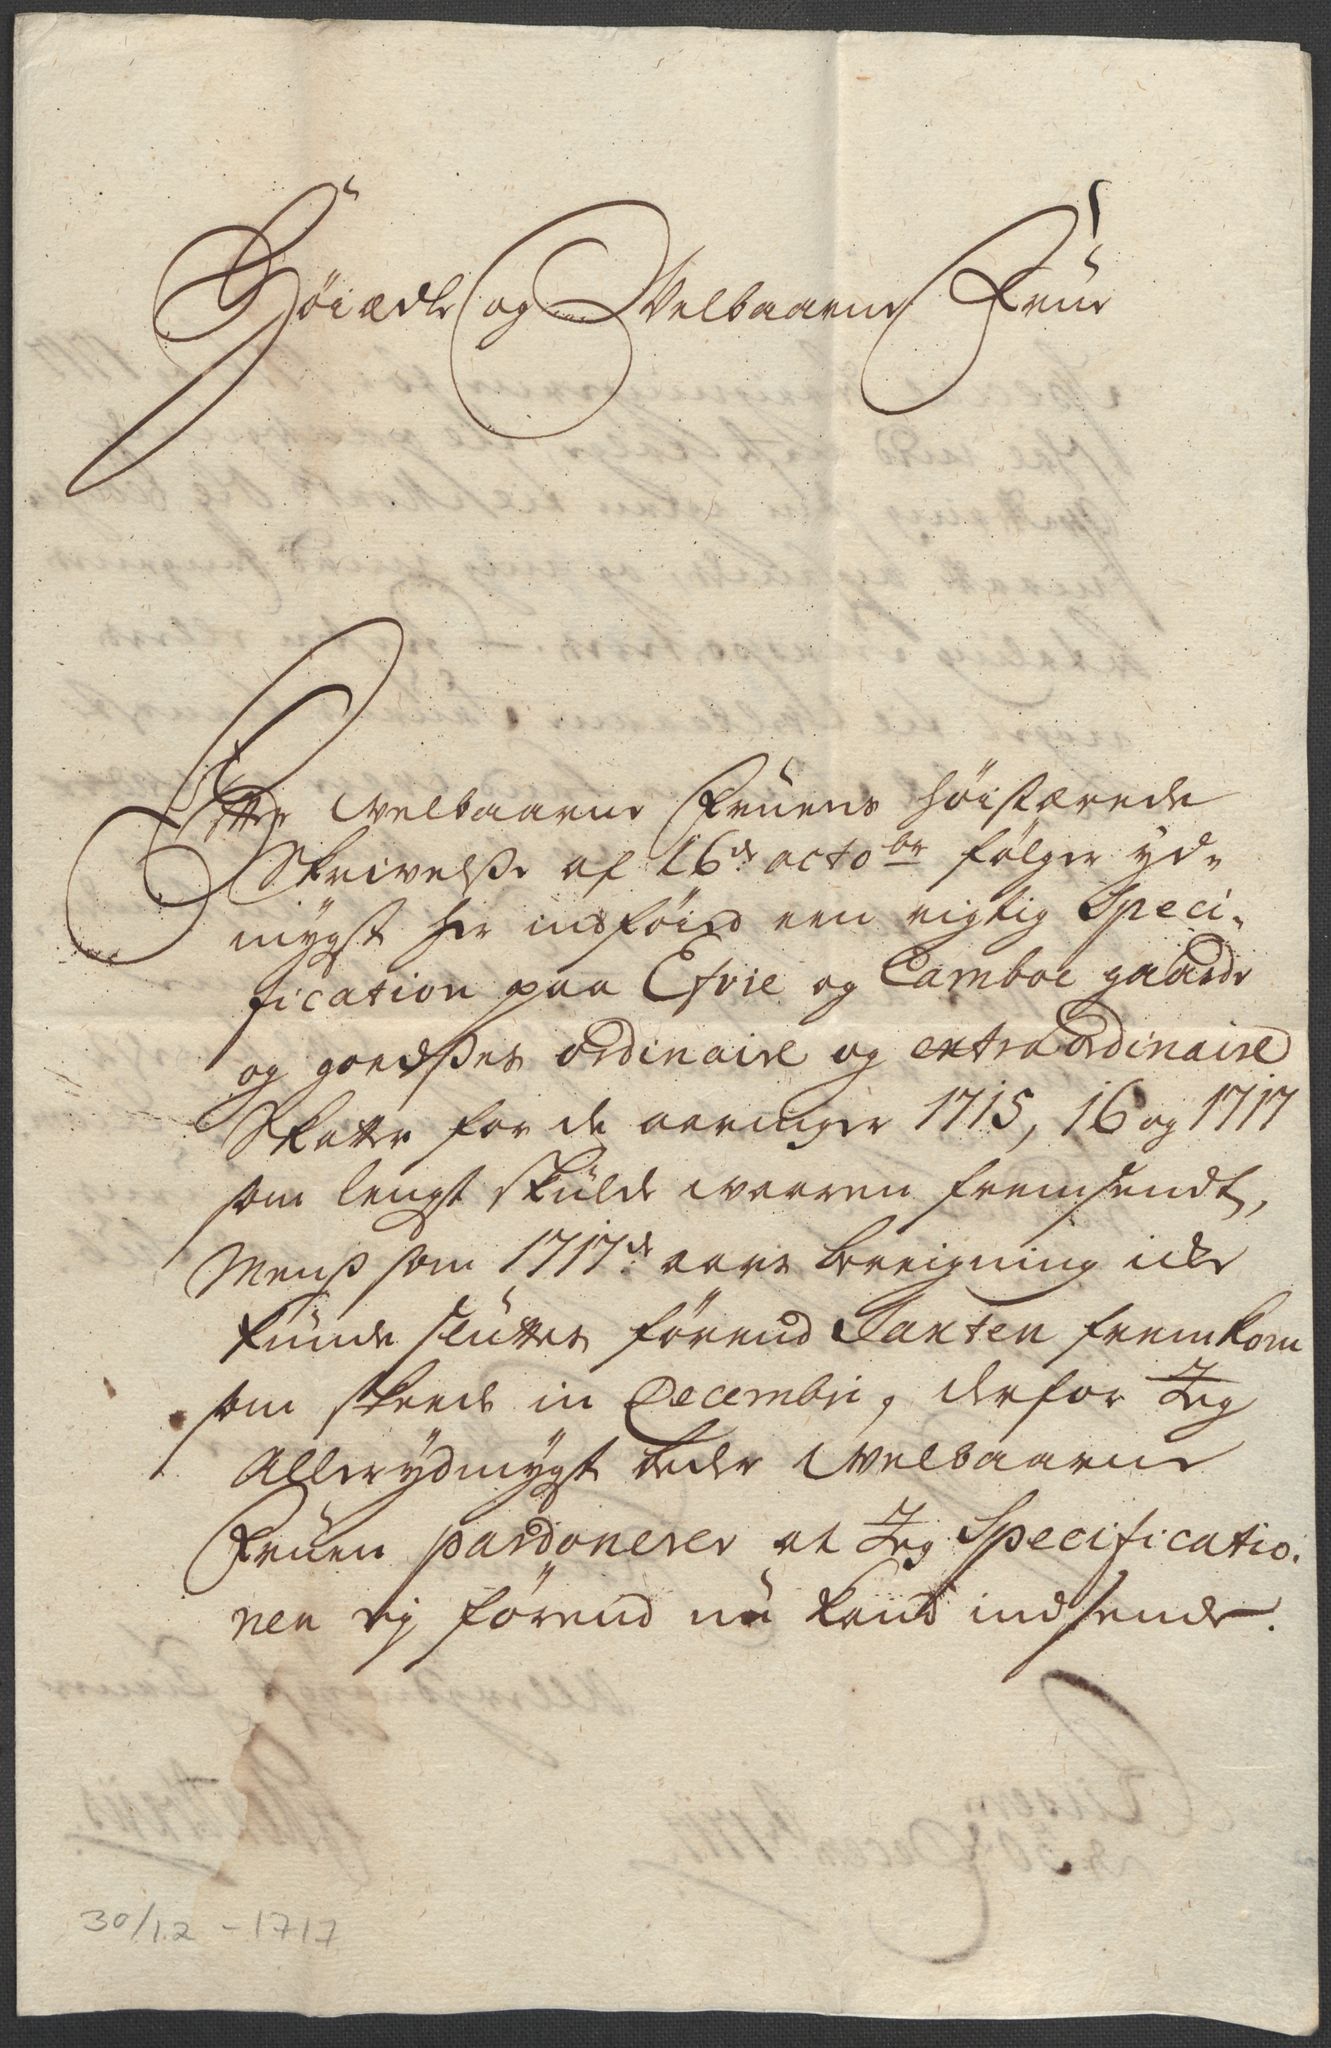 Høiædle og Welbaarne Frue
Efter Welbaarne Fruens høistærede
Skrivelße af 16de octobr følger yd-
mygst her indføied een rigtig Speci-
fication paa Efvie og Camboe gaarde
og goedßes ordinaire og extraordinaire
Skatter for de aaringer 1715, 16 og 1717
som lengst skulde waaren fremsendt,
Menß som 1717de aars bereigning icke
kunde sluttes førend Taxten fremkom
som skeede in Decembri, derfor Jeg
Allerydmygst beder Welbaarne
Fruen pardonerer at Jeg Specificatio-
nen ej førend nu kand indsende.
30/12 - 1717